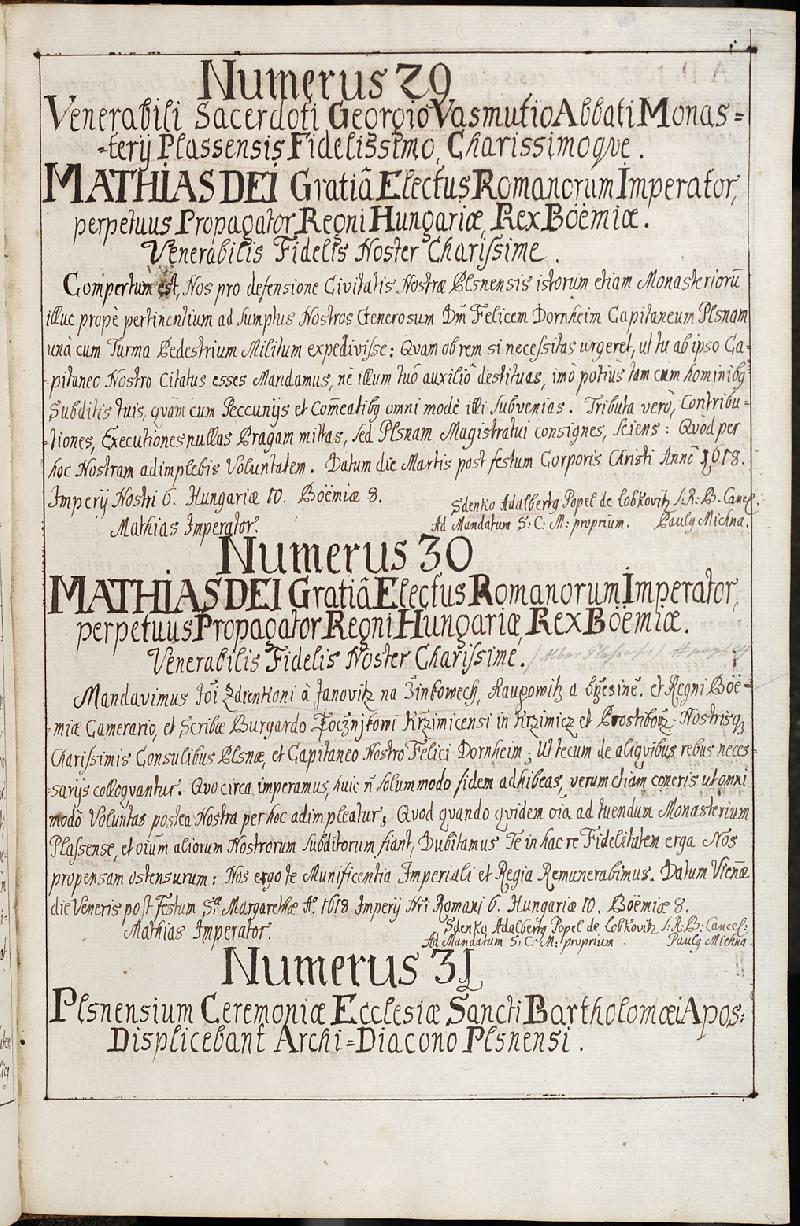 Numerus 29
Venerabili Sacerdoti Georgio Vasmutio Abbati Monas=
=terij Plassensis Fidelissimo, Charissimoqve.
MATHIAS DEI Gratiâ Electus Romanorum Imperator,
perpetuus Propagator Regni Hungariæ, Rex Böëmiæ.
Venerabilis Fidelis Noster Charissime.
Compertum est, Nos pro defensione Civitatis Nostræ Plsnensis istorum etiam Monasteriorũ
illuc propè pertinentium ad sumptus Nostros Generosum Dm̃ Felicem Dornheim Capitaneum Plsnam
unà cum Turma Pedestrium Militum expedivisse: Quam ob rem si necessitas urgeret, ut tu ab ipso Ca=
=pitaneo Nostro Citatus esses Mandamus, nè illum tuô auxiliô destituas, imò potius tam cum hominibq
Subditis tuis, quàm cum Peccunijs et Com̃eatibq omni modè illi subvenias. Tributa verò, Contribu=
=tiones, Executiones nullas Pragam mittas, sed Plsnam Magistratui consignes, sciens: Quòd per
hoc Nostram adimplebis Voluntatem. Datum die Martis post festum Corporis Christi Anni 1618.
Imperij Nostri 6. Hungariæ 10. Böëmiæ 8.
Sdenko Adalbertq Popel de Lobkovitz S. R. B. Cancel.
Mathias Imperator.
Ad Mandatum S. C. M. proprium. Paulq Michna.
Numerus 30
MATHIAS DEI Gratiâ Electus Romanorum Imperator,
perpetuus Propagator Regni Hungariæ, Rex Böëmiæ.
Venerabilis Fidelis Noster Charissime.
Mandavimus à Janovitz na et Regni Böë=
miæ Camerario, et Scribæ Burgardo Krzimicensi in Krzimicz et Nostrisq
Charissimis Consulibus Plsnæ, et Capitaneo Nostro Felici Dornheim; Ut tecum de aliqvibus rebus neces=
=sarijs colloqvantur. Qvocirca imperamus, huic ñ solummodo fidem adhibeas, verum etiam coneris ut omni
modô Voluntas postea Nostra per hoc adimpleatur; Quod quando qvidem oia ad tuendum Monasterium
Plassense, et oium aliorum Nostrorum Subditorum fiant, Dubitamus Te in hac re Fidelitatem erga Nos
propensam ostensurum: Nos ergo te Munificentia Imperiali et Regia Remunerabimus. Datum Viennæ
die Veneris post Festum S. Margarethæ A. 1618 Imperij Nri Romani 6. Hungariæ 10. Böëmiæ 8.
Mathias Imperator.
Sdenko Adalbertq Popel de Lobkovitz S. R. B. Cancel.
Ad Mandatum S. C. M. proprium. Paulq Michna
Numerus 31
Plsnensium Ceremoniæ Ecclesiæ Sancti Bartholomæi Apos:
Displicebant Archi=Diacono Plsnensi.